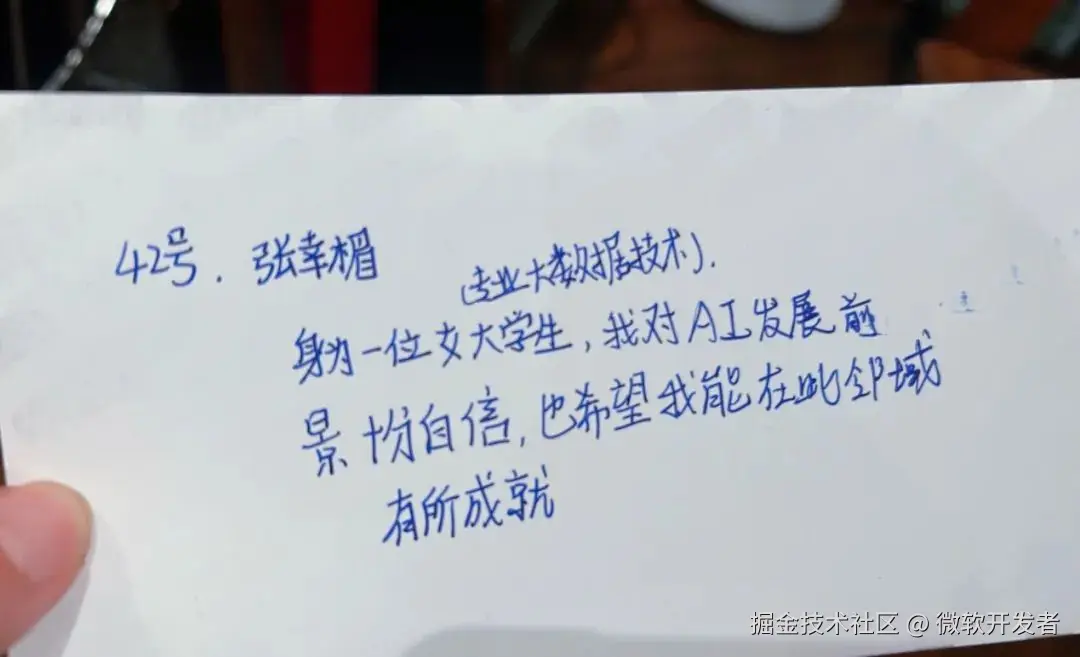 42号. 张幸楣
(专业大数据技术).
身为一位女大学生,我对AI发展前
景十份自信,也希望我能在此邻域
有所成就
掘金技术社区 @ 微软开发者